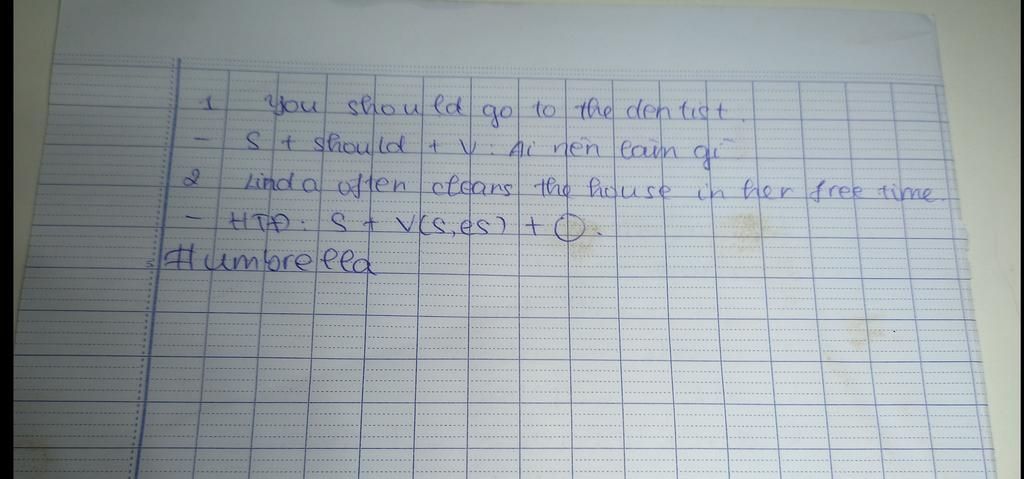 1 You should go to the dentist.
- S + should + V: Ai nên làm gì
2 Linda often cleans the house in her free time.
- HTĐ: S + V(s,es) + O.
#umbrella